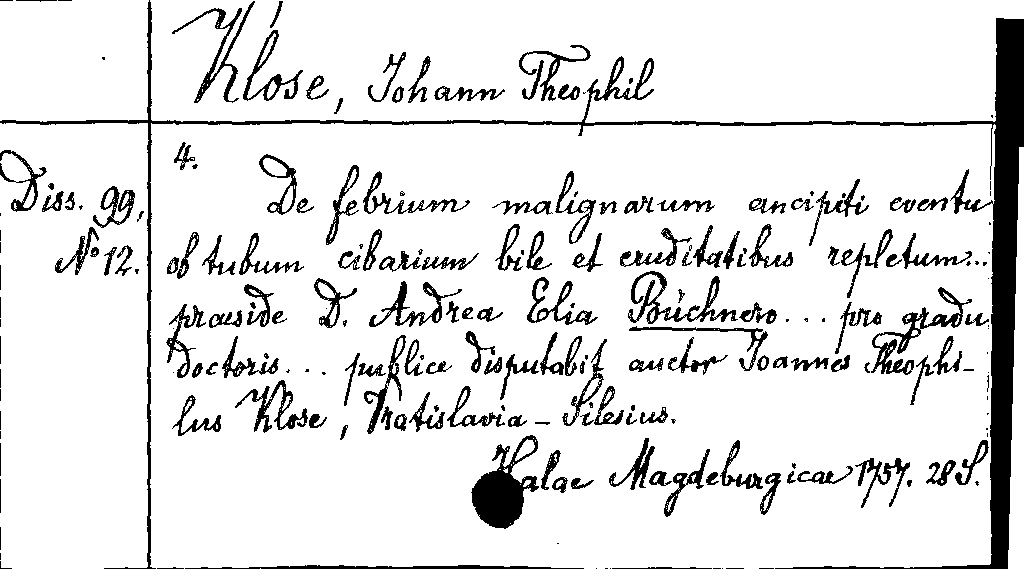 Klose, Johann Theophil
4.
Diss. 99,
No 12.
De febrium malignarum ancipiti eventu
ob tubum cibarium bile et cruditatibus repletum...
praeside D. Andrea Elia Büchnero... pro gradu
doctoris... publice disputabit auctor Joannes Theophi-
lus Klose, Vratislavia-Silesius.
Halae Magdeburgicae 1757. 28 S.